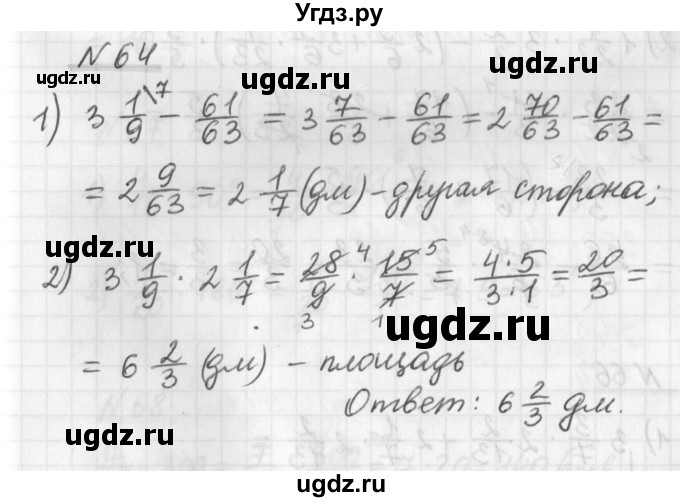 Угдз.ру
N 64
ugdz.ru ugdz.ru ugdz.ru
1) 3 1/9\7 - 61/63 = 3 7/63 - 61/63 = 2 70/63 - 61/63 =
= 2 9/63 = 2 1/7 (дм) - другая сторона;
ugdz.ru ugdz.ru
2) 3 1/9 · 2 1/7 = 28 4/9 3 · 15 5/7 1 = 4·5/3·1 = 20/3 =
ugdz.ru
= 6 2/3 (дм) - площадь
Ответ: 6 2/3 дм.
ugdz.ru ugdz.ru ugdz.ru
ugdz.ru